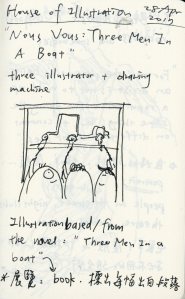 House of Illustration
28 Apr
2015
"Nous Vous: Three Men In
A Boat"
three illustrator + drawing
machine
Illustration based / from
the novel: "Three Men In a
boat"
* 展覽: book.